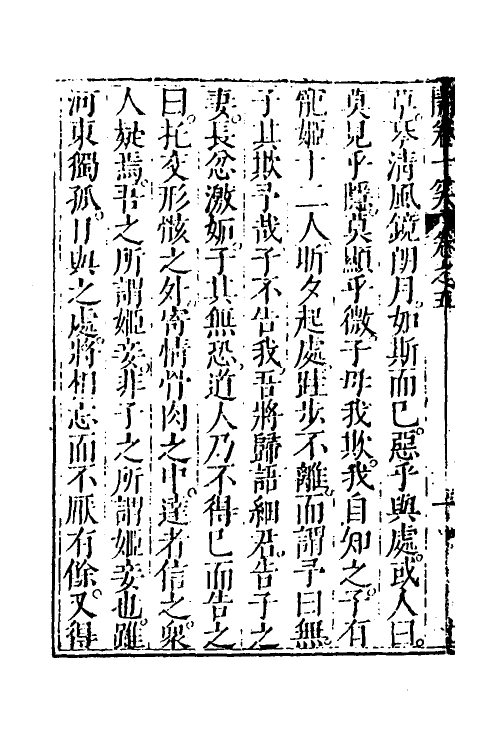 開卷一笑 卷之五
草琴清風鏡朗月如斯而已惡乎與處或人曰
莫見乎隱莫顯乎微子毋我欺我自知之子有
寵姬十二人昕夕起處跬步不離而謂予曰無
子其欺予哉子不告我吾將歸語細君告子之
妻長忿激妬子其無恐道人乃不得已而告之
曰托交形骸之外寄情骨肉之中達者信之衆
人疑焉吾之所謂姬妾非子之所謂姬妾也雖
河東獨孤日與之處將相忘而不厭有餘又得